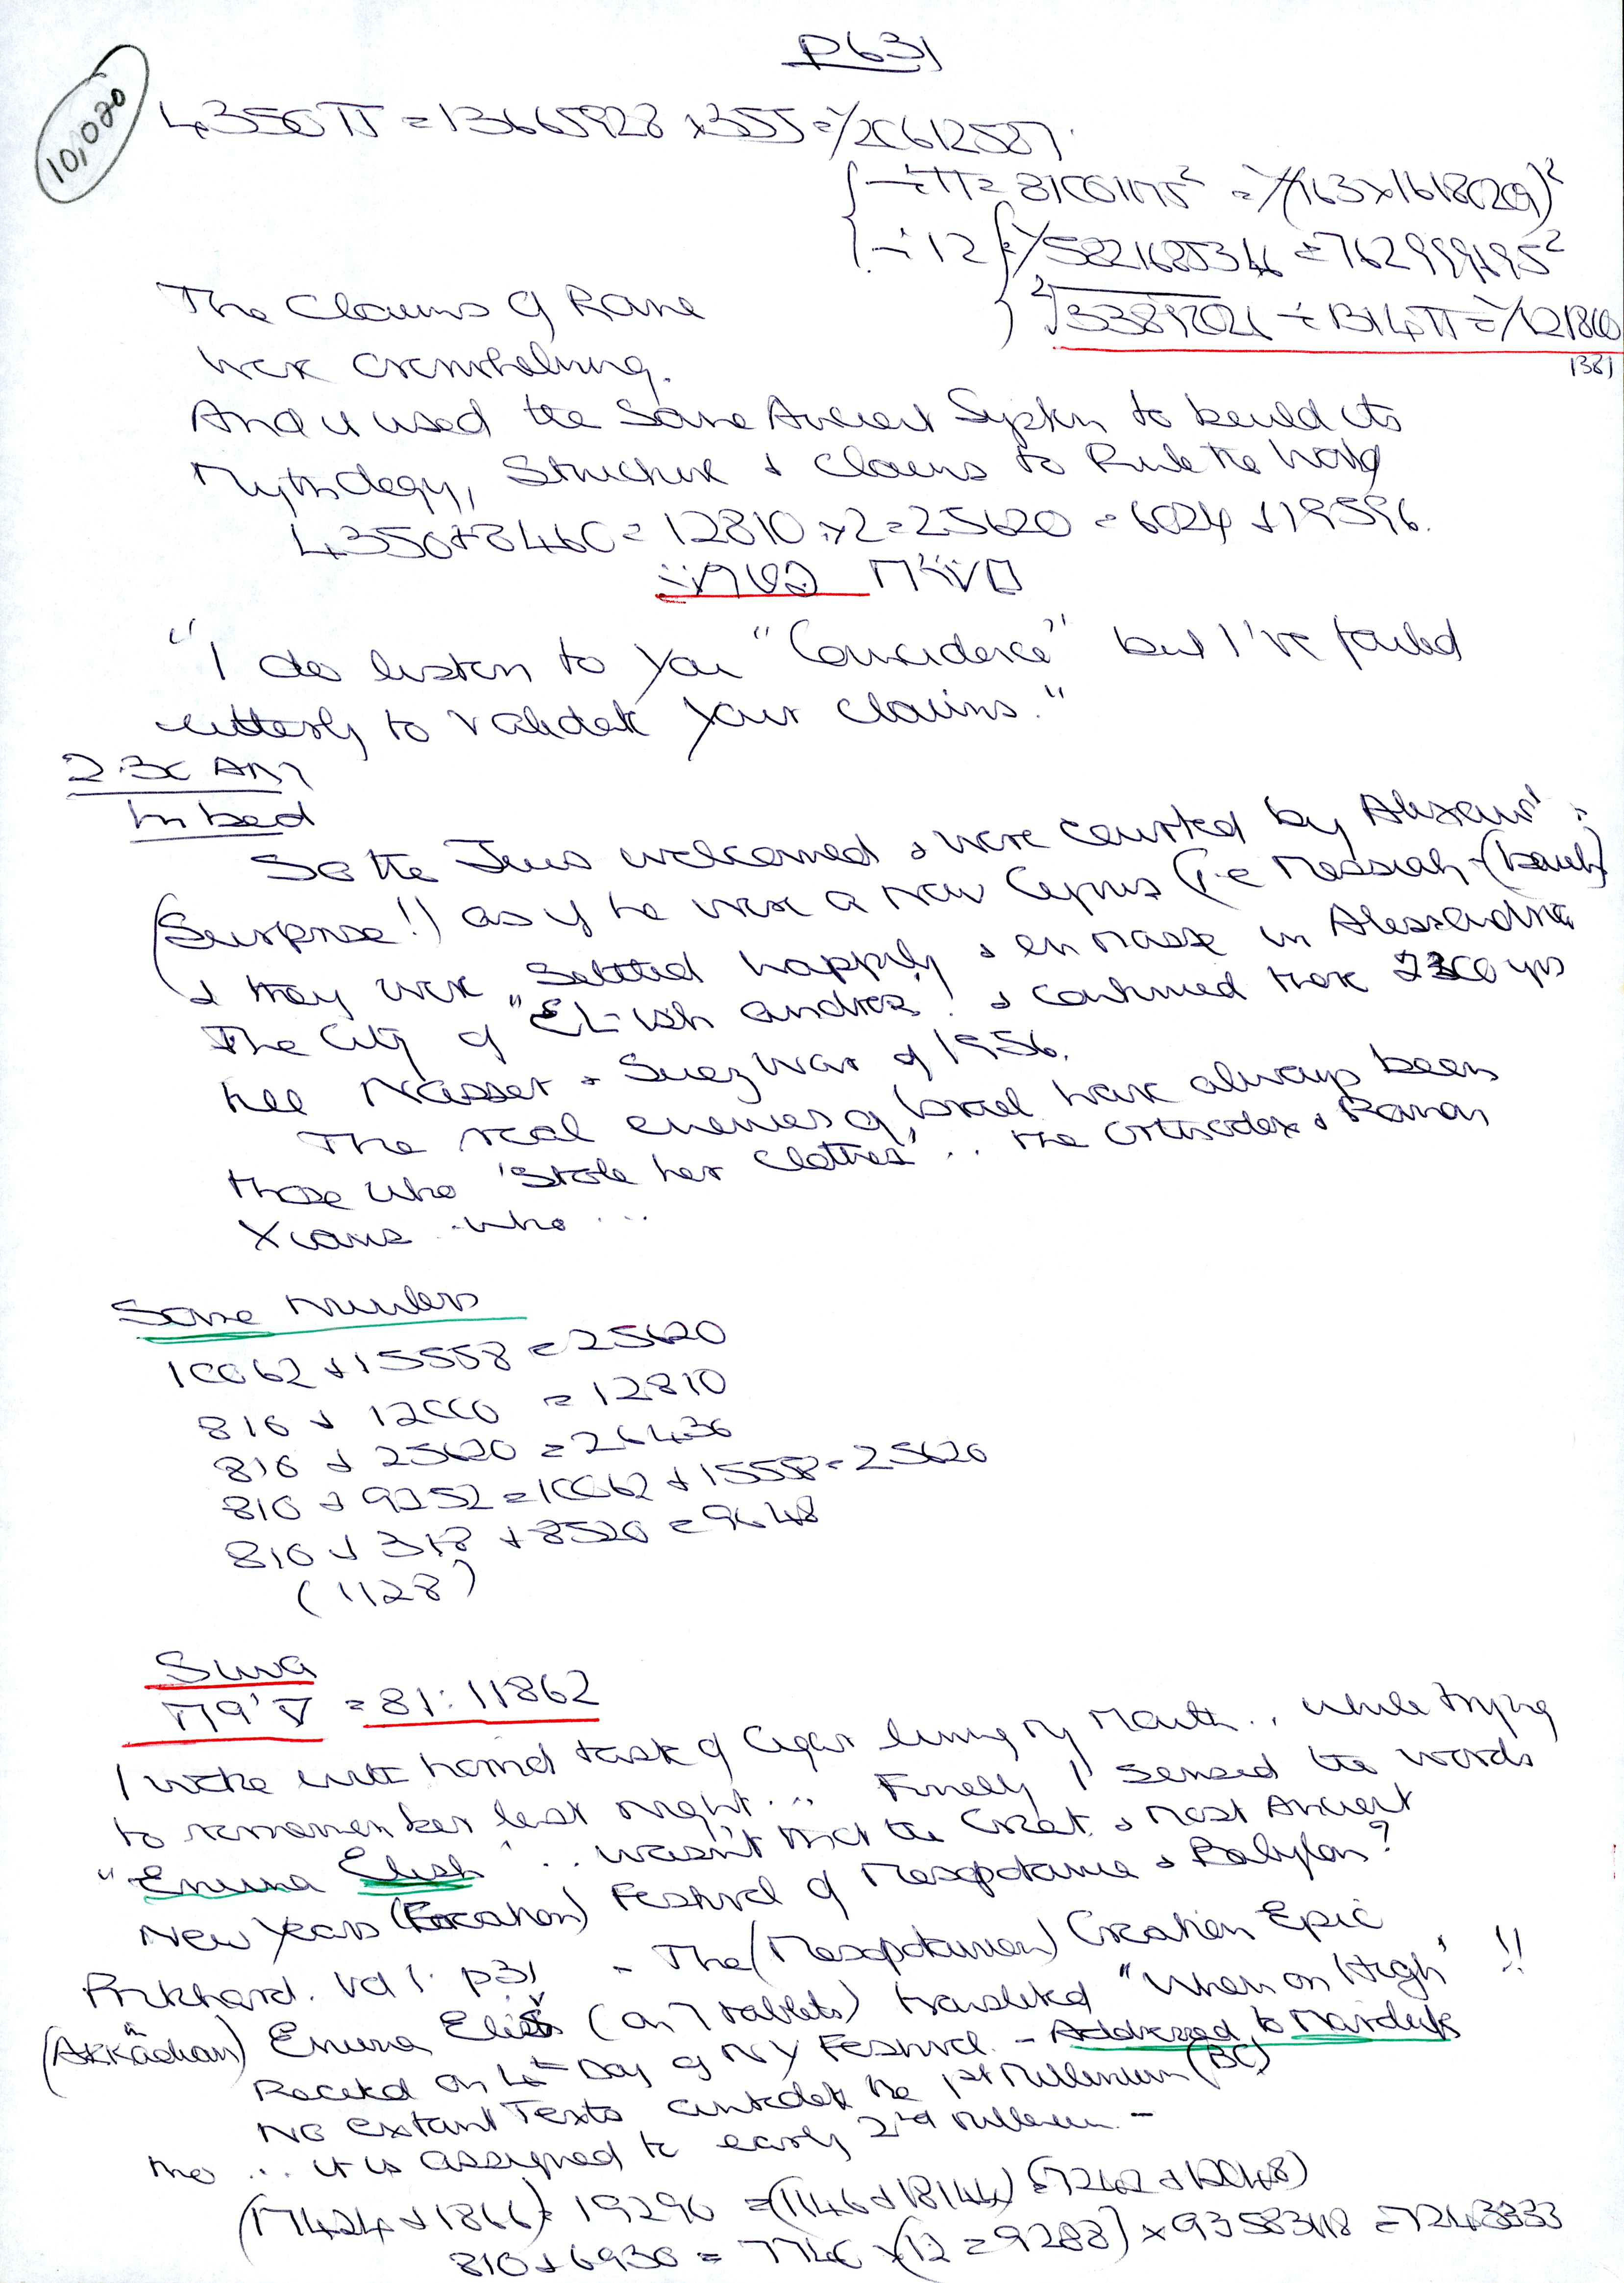 P631
10,020
4350π = 13665928 × 355 = 1/20612587
÷ π = 81001175² = 1/(163 × 1618029)²
÷ 12 = 1/5821685346 = 762999195²
÷ 1314π = 1/121800
1381
The Claims of Rome
were overwhelming.
And it used the Same Ancient System to build its
Mythology, Structure & Claims to Rule the World
4350 + 8460 = 12810 × 2 = 25620 = 6024 + 19596.
"I do listen to you "Coincidence" but I've failed
utterly to validate your claims."
2.30 AM
In bed
So the Jews welcomed & were courted by
(Surprise!) as if he were a new Cyrus (i.e Messiah
& they were settled happily & en masse in Alessandria
The City of "EL-ish andria! & continued there 2300 yrs
till Nasser & Suez War of 1956.
The real enemies of Israel have always been
those who 'stole her clothes' .. the Orthodox & Roman
Xians who ...
Some Numbers
10062 + 15558 = 25620
810 + 12000 = 12810
810 + 25620 = 26430
810 + 9252 = 10062 + 15558 = 25620
810 + 318 + 8520 = 9648
(1128)
= 81:11862
I woke with horrid taste of Cigar lining my Mouth .. while trying
to remember last night ... Finally I sensed the words
"Enuma Elish" .. wasn't that the Great & Most Ancient
New Years Festival of Mesopotamia & Babylon?
Pritchard. Vol 1. p31 - The (Mesopotamian) Creation Epic
(Akkadian) Enuma Eliš (on 7 tablets) translated "When on High" !!
Recited on 4th Day of NY Festival. - Addressed to Marduk
No extant Texts antedate the 1st Millenium (BC)
tho ... it is assigned to early 2nd Millenium -
(17424 + 1866) = 19290 = (1146 + 18144) = (7242 + 12048)
810 + 6930 = 7740 × (12 = 9288) × 9358348 = 72483333